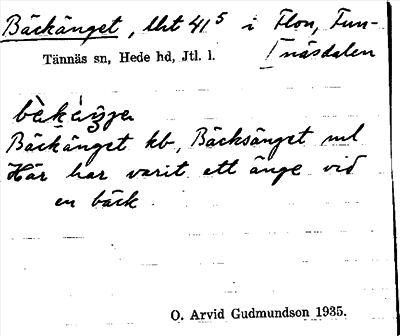 Bäckänget, lht 41⁵ i Flon, Funäsdalen
Tännäs sn, Hede hd, Jtl. l.
Bäckänget kb, Bäcksänget ml
Här har varit ett änge vid
en bäck.
O. Arvid Gudmundson 1935.